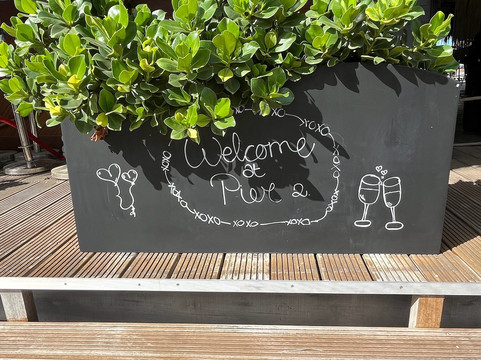 Welcome
at
Pier 2
xoxo
xoxo
xoxo
xoxo
xoxo
xoxo